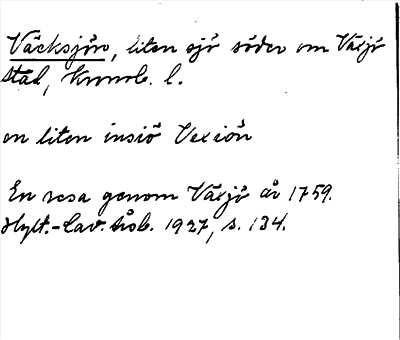 Växsjön, liten sjö söder om Växjö
stad, Kronob. l.
en liten insiö Vexiön
En resa genom Växjö år 1759.
Hylt.-Cav. årsb. 1927, s. 134.